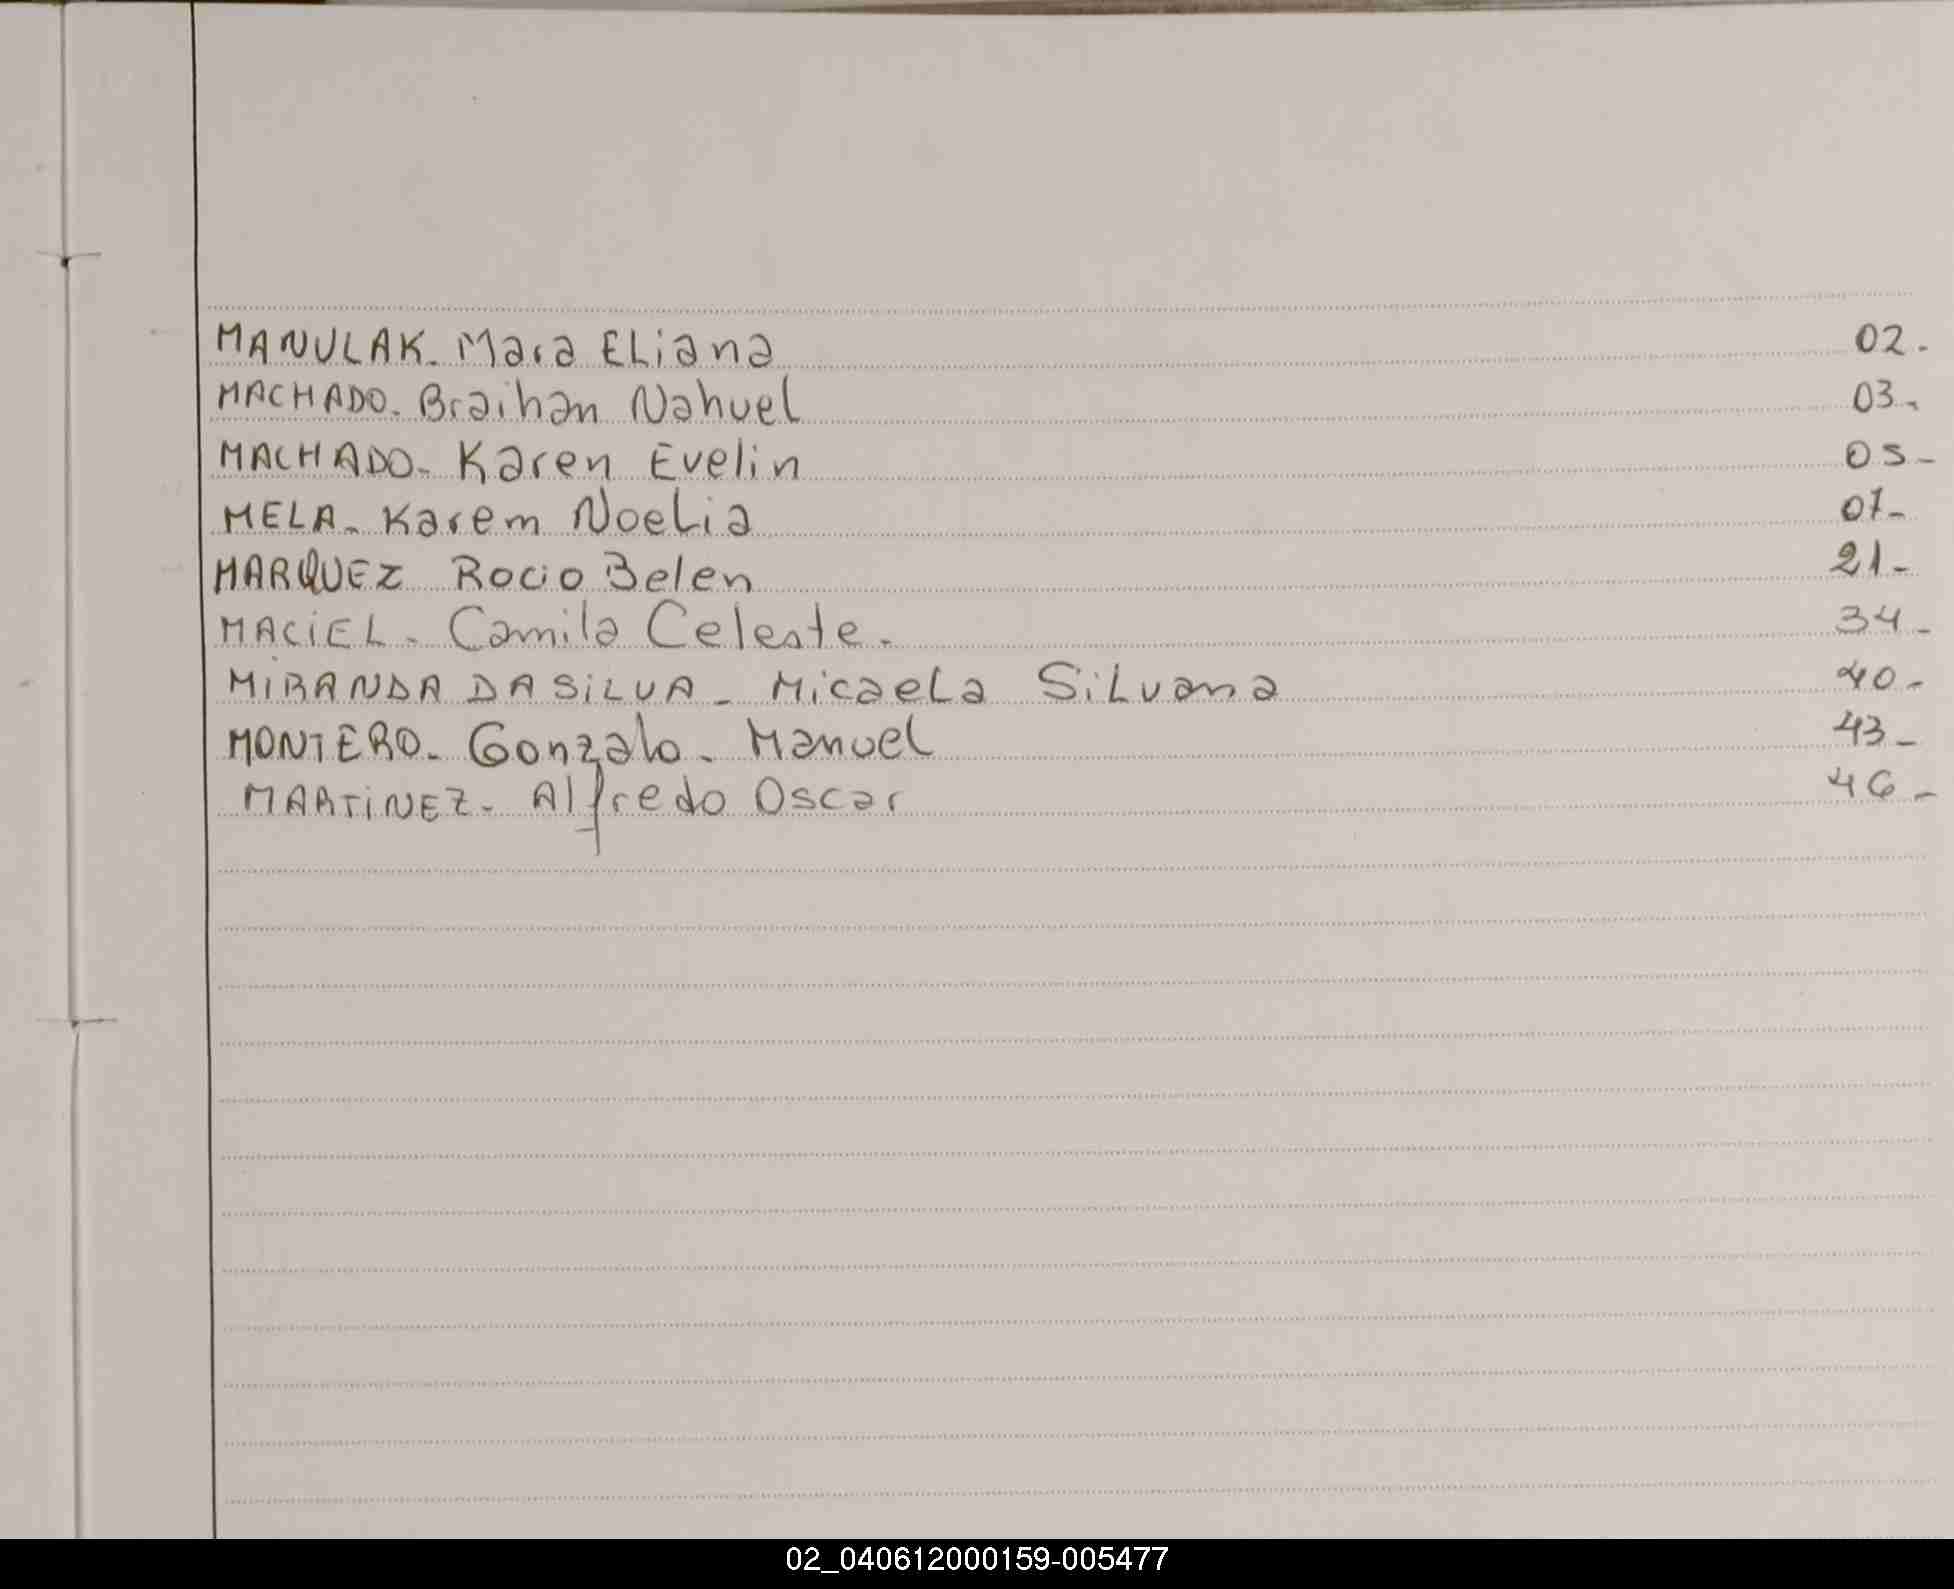 MANULAK. Mara Eliana 02.
MACHADO. Braihan Nahuel 03.
MACHADO. Karen Evelin 05-
MELA. Karem Noelia 07-
MARQUEZ Rocio Belen 21-
MACiEL. Camila Celeste. 34-
MiRANDA DA SiLVA - Micaela Silvana 40-
MONTERO. Gonzalo. Manuel 43-
MARTiNEZ. Alfredo Oscar 46-
02_040612000159-005477